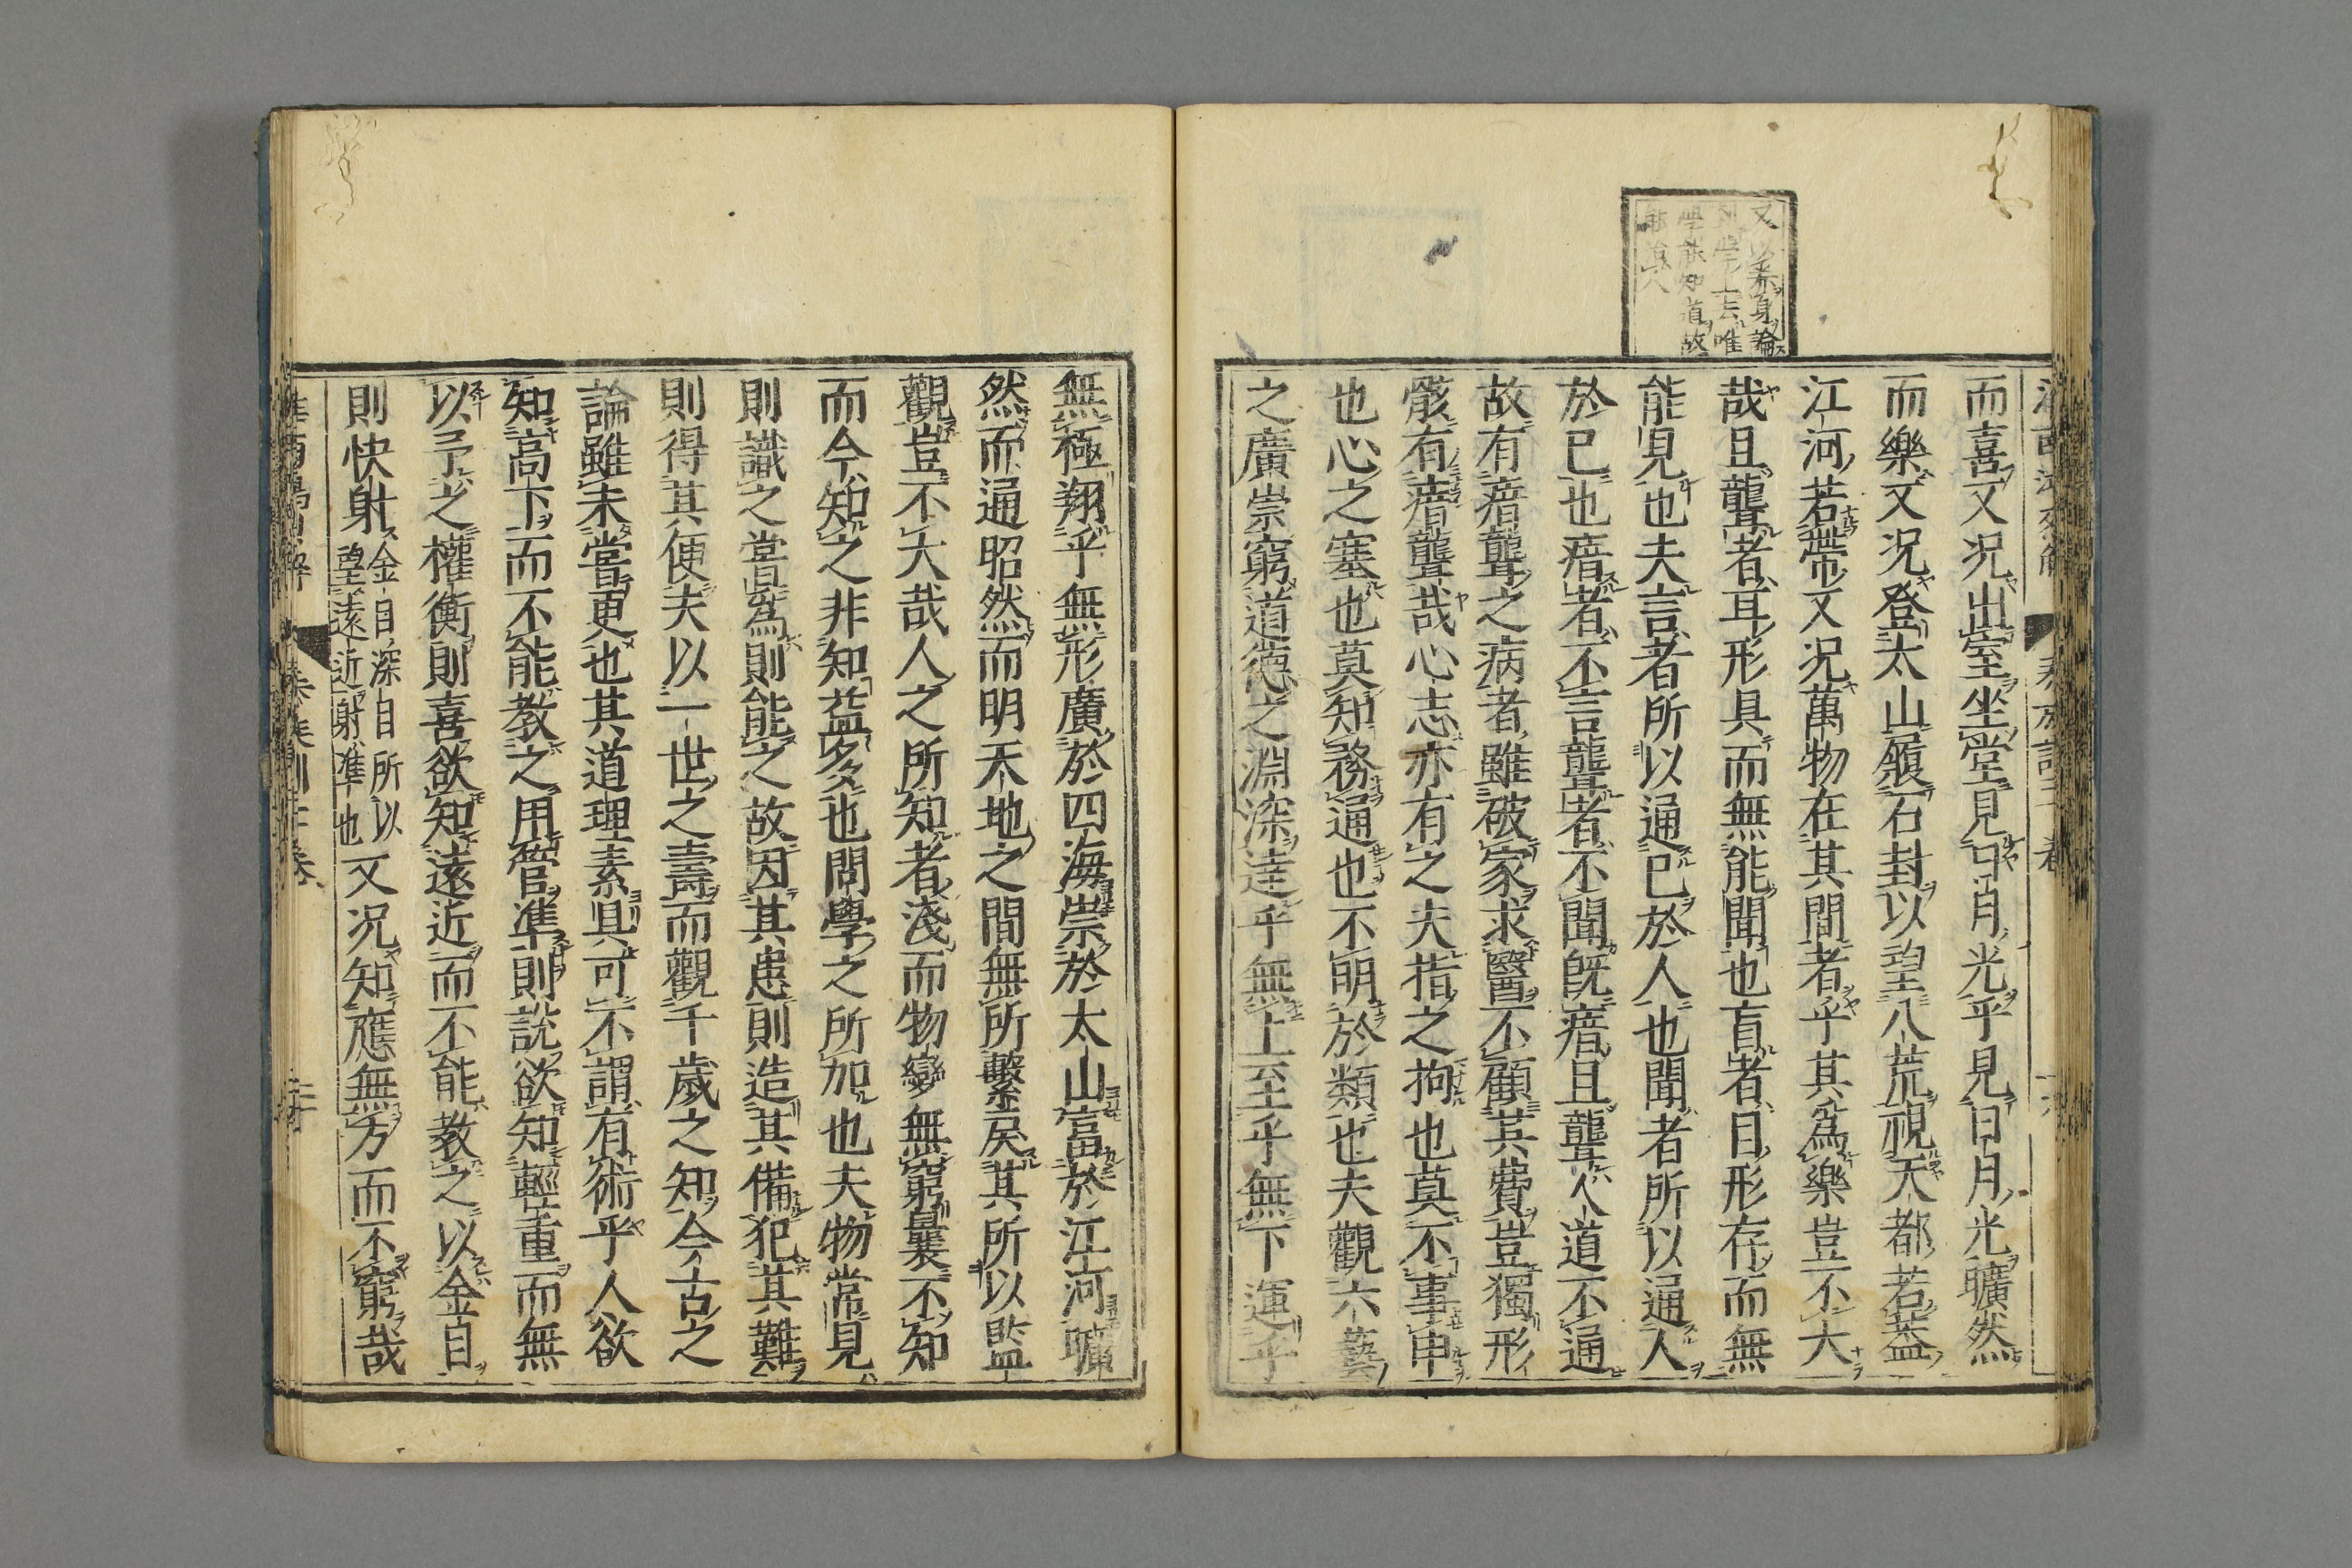 身論
唯
學能知道故
能
而喜又況出室坐堂見日月光乎見日月光曠然
而樂又況登太山履石封以望八荒視天都若蓋
江河若帶又況萬物在其間者乎其為樂豈不大
哉且聾者耳形具而無能聞也盲者目形存而無
能見也夫言者所以通己於人也聞者所以通人
於己也瘖者不言聾者不聞既瘖且聾人道不通
故有瘖聾之病者雖破家求醫不顧其費豈獨形
骸有瘖聾哉心志亦有之夫指之拘也莫不事申
也心之塞也莫知務通也不明於類也夫觀六藝
之廣崇窮道德之淵深達乎無上至乎無下運乎
無極翔乎無形廣於四海崇於太山富於江河曠
然而通昭然而明天地之間無所繫戾其所以監
觀豈不大哉人之所知者淺而物變無窮曩不知
而今知之非知益多也問學之所加也夫物常見
則識之嘗為則能之故因其患則造其備犯其難
則得其便夫以一世之壽而觀千歲之知今古之
論雖未嘗更也其道理素具可不謂有術乎人欲
知高下而不能教之用管準則說欲知輕重而無
以予之權衡則喜欲知遠近而不能教之以金目
則快射金目深目所以望遠近射準也又況知應無方而不窮哉